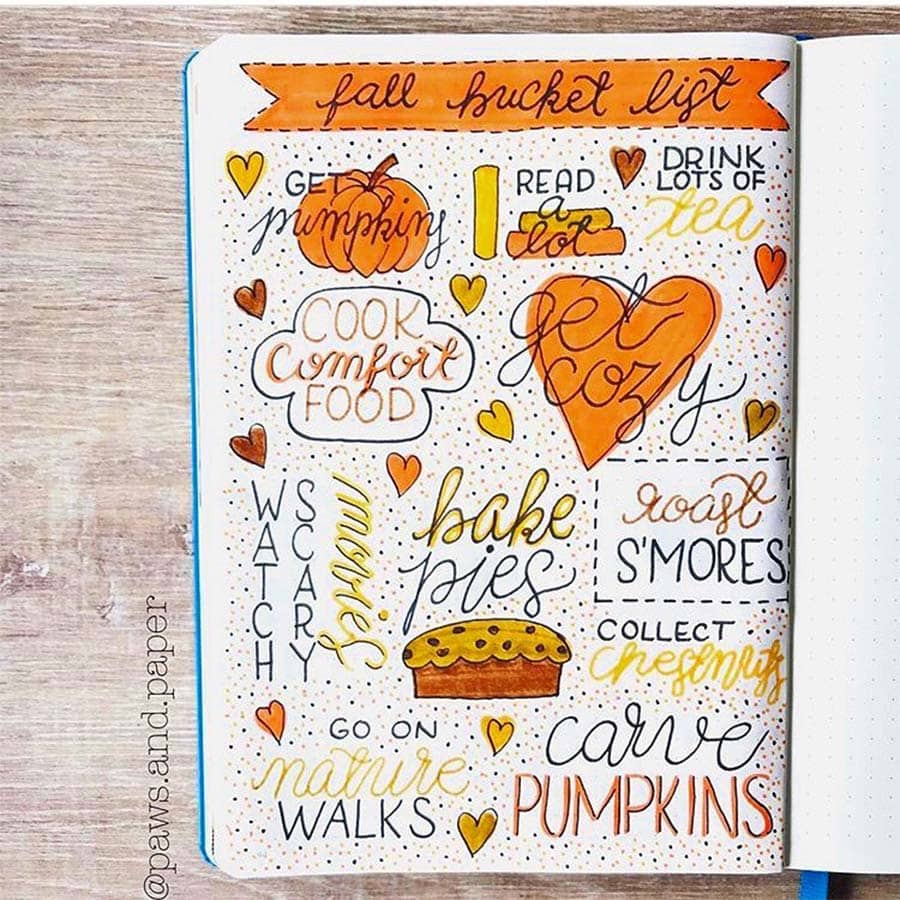 fall bucket list
GET
pumpkins
READ
a
lot
DRINK
LOTS OF
tea
COOK
Comfort
FOOD
get
cozy
WATCH
SCARY
movies
bake
pies
roast
S'MORES
COLLECT
chestnuts
GO ON
nature
WALKS
carve
PUMPKINS
@paws.and.paper